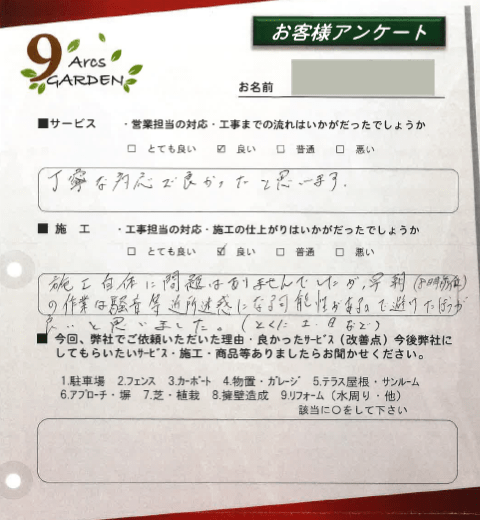 9 Arcs
GARDEN
お客様アンケート
お名前
■サービス ・営業担当の対応・工事までの流れはいかがだったでしょうか
□ とても良い ☑ 良い □ 普通 □ 悪い
丁寧な対応で良かったと思います.
■施 工 ・工事担当の対応・施工の仕上がりはいかがだったでしょうか
□ とても良い ☑ 良い □ 普通 □ 悪い
施工自体に問題はありませんでしたが、早朝(8時前後)
の作業は騒音等近所迷惑になる可能性があるので避けたほうが
良いと思いました。(とくに土・日など)
■今回、弊社でご依頼いただいた理由・良かったサービス(改善点)今後弊社に
してもらいたいサービス・施工・商品等ありましたらお聞かせください。
1.駐車場 2.フェンス 3.カーポート 4.物置・ガレージ 5.テラス屋根・サンルーム
6.アプローチ・塀 7.芝・植栽 8.擁壁造成 9.リフォーム(水周り・他)
該当に○をして下さい